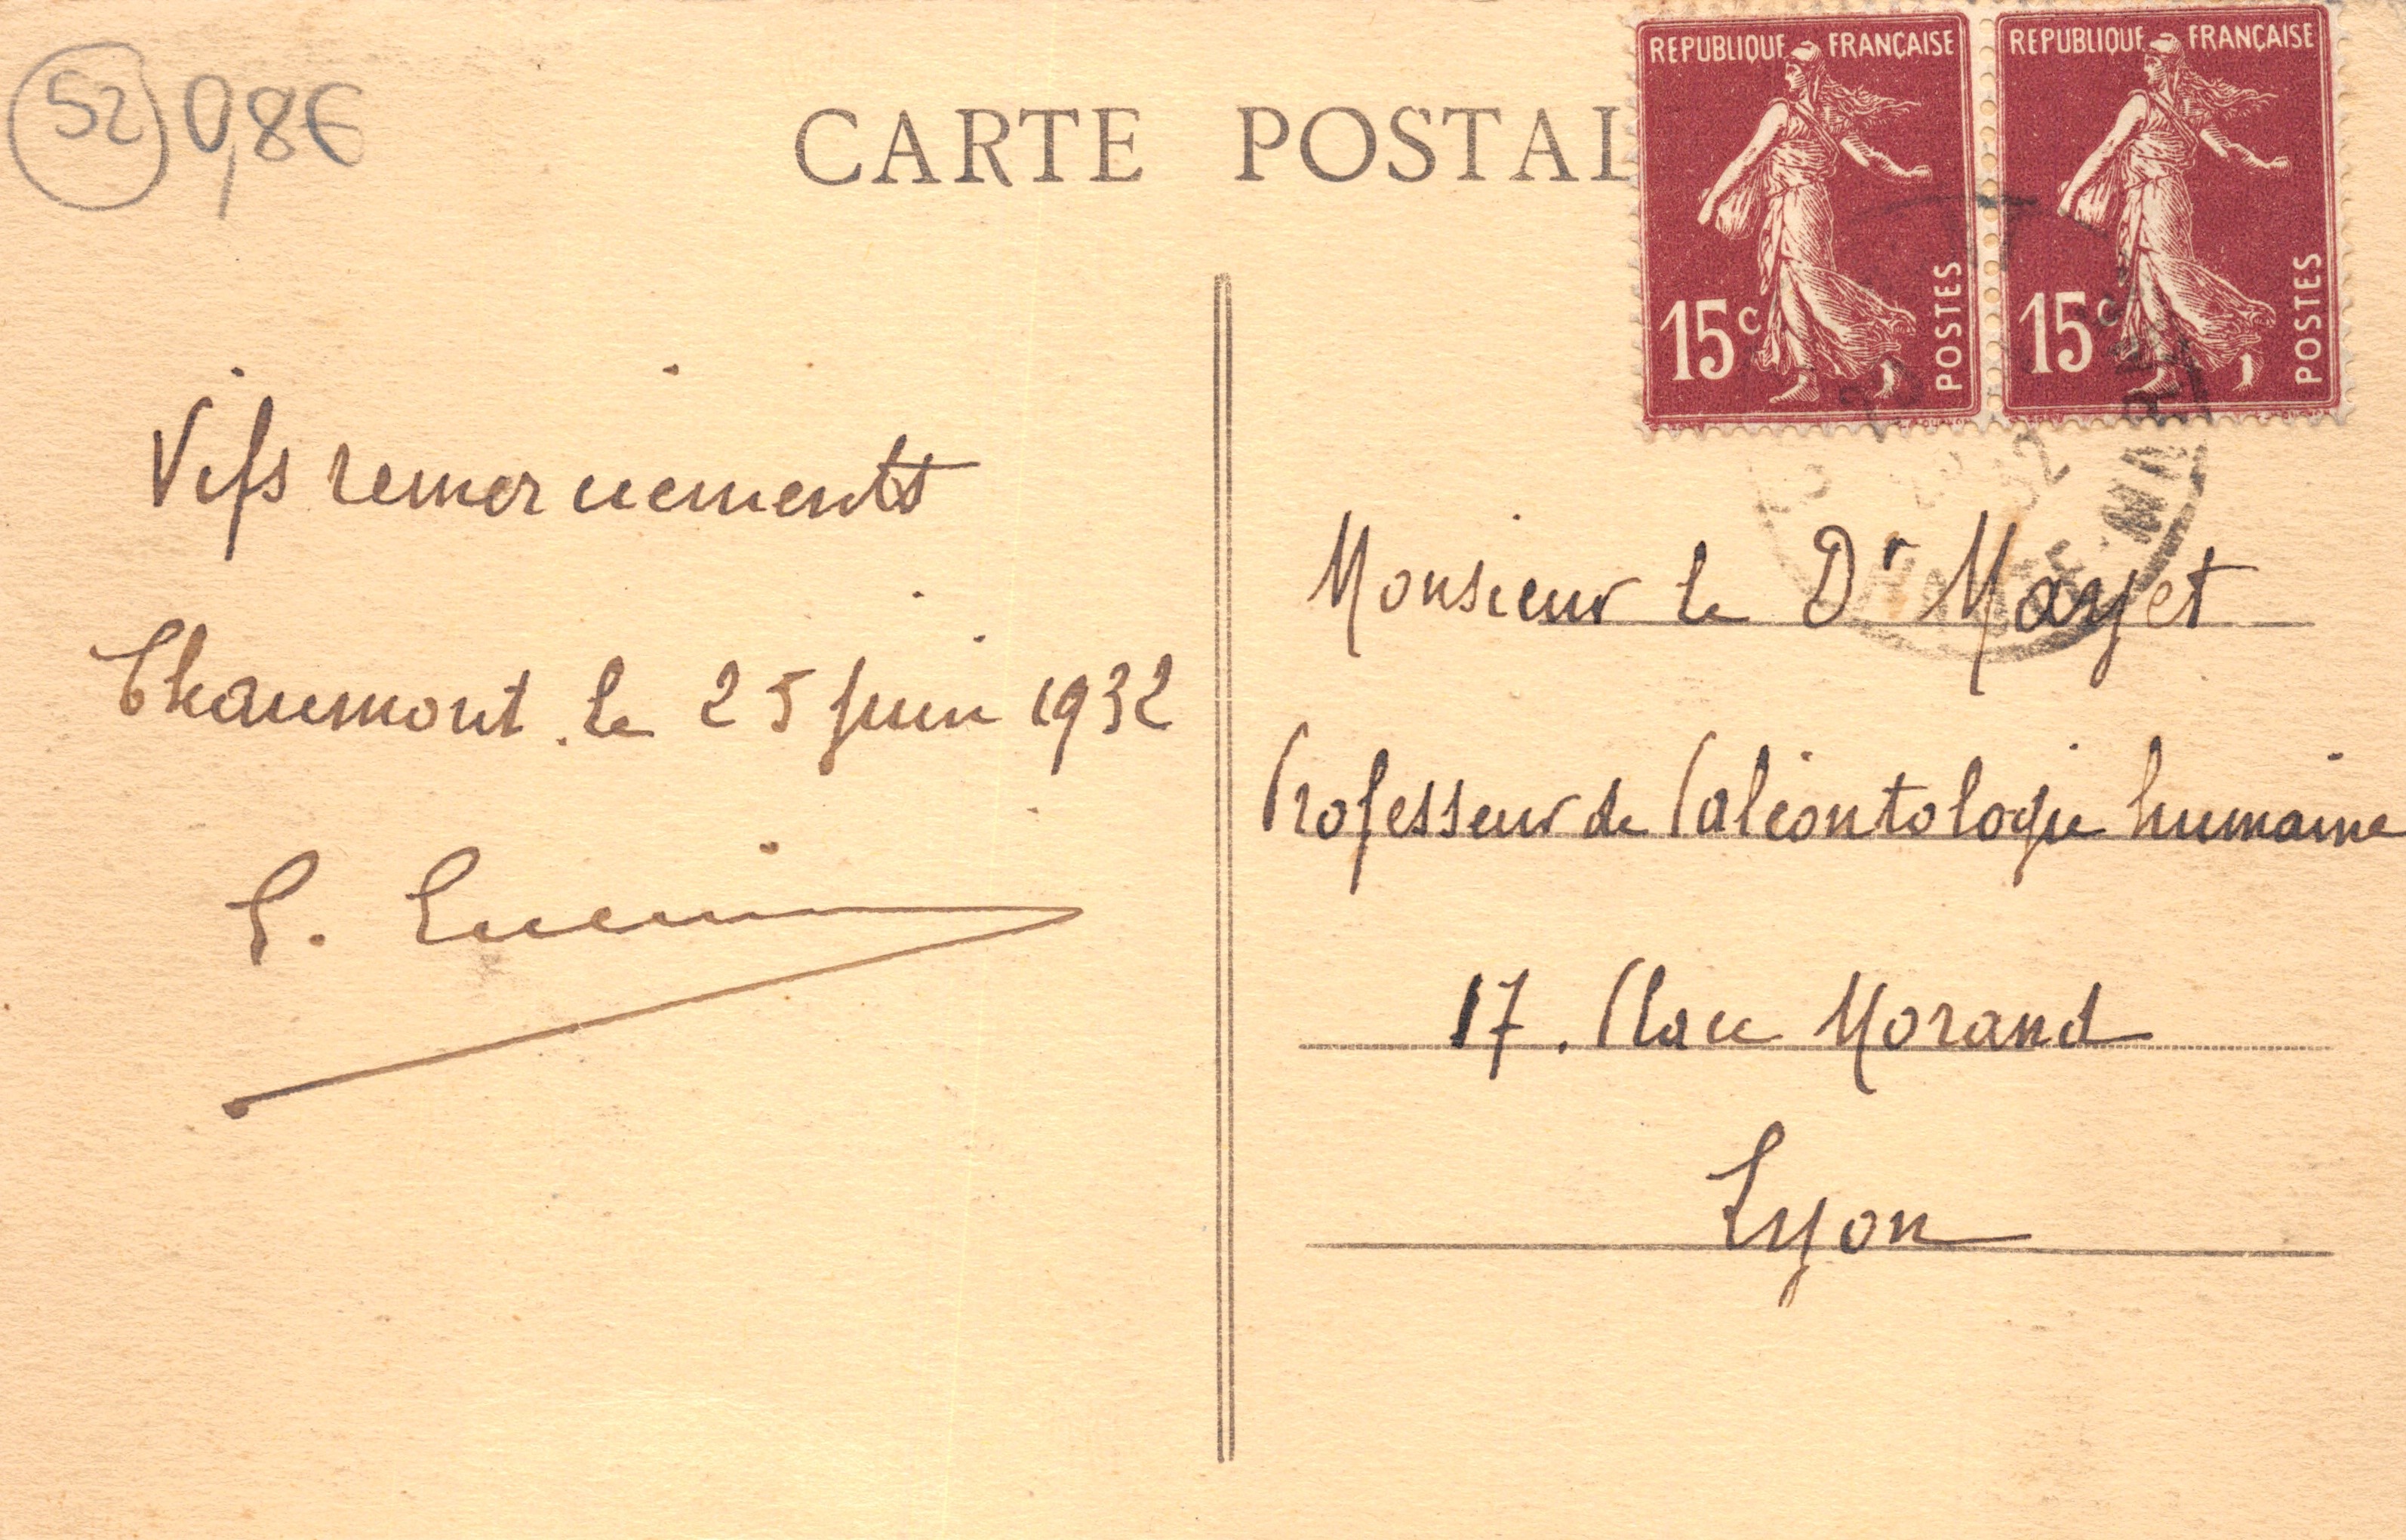 52 0,8€
CARTE POSTAL
REPUBLIQUE FRANÇAISE
15c
POSTES
REPUBLIQUE FRANÇAISE
15c
POSTES
Vifs remerciements
Chaumont. le 25 juin 1932
32
HAUTE-MARNE
Monsieur le Dr Mayet
Professeur de Paléontologie humaine
17. Place Morand
Lyon